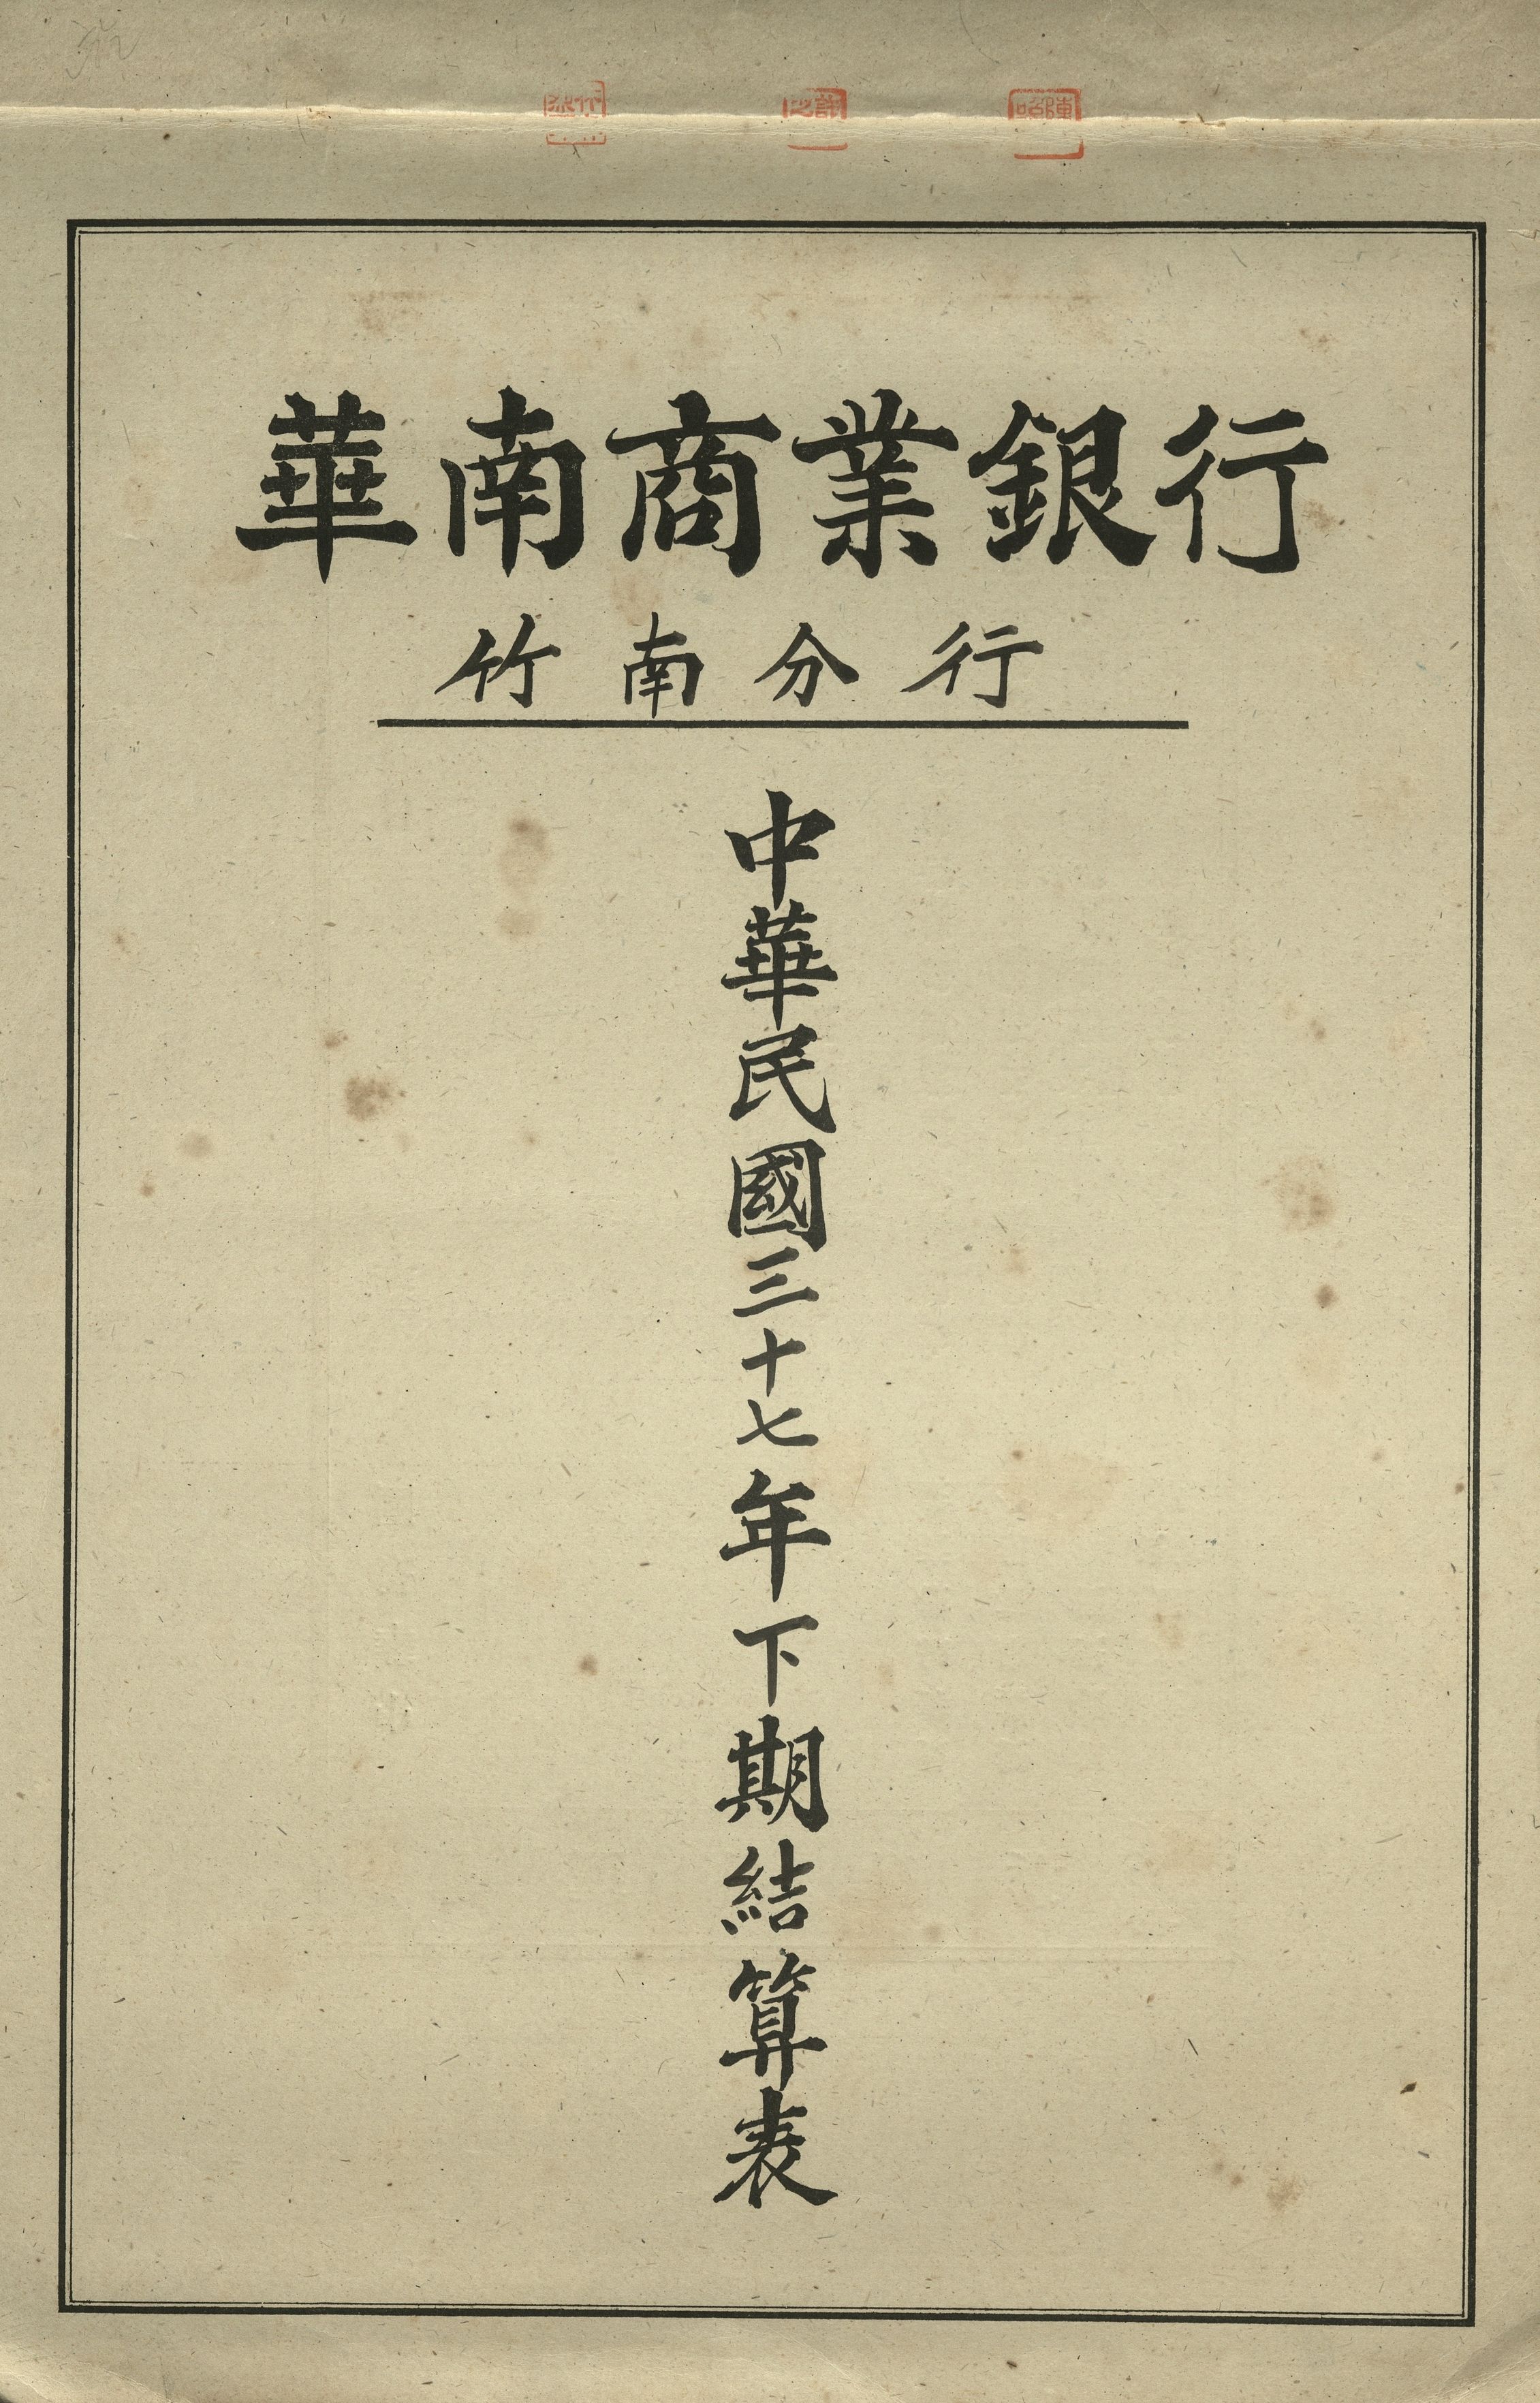 華南商業銀行
竹南分行
中華民國三十七年下期結算表